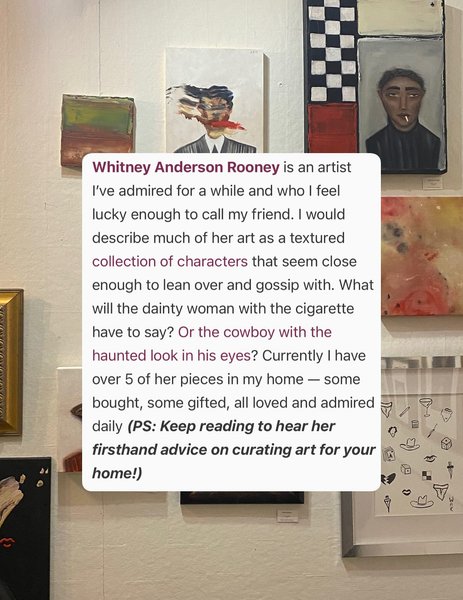 Whitney Anderson Rooney is an artist
I’ve admired for a while and who I feel
lucky enough to call my friend. I would
describe much of her art as a textured
collection of characters that seem close
enough to lean over and gossip with. What
will the dainty woman with the cigarette
have to say? Or the cowboy with the
haunted look in his eyes? Currently I have
over 5 of her pieces in my home — some
bought, some gifted, all loved and admired
daily (PS: Keep reading to hear her
firsthand advice on curating art for your
home!)